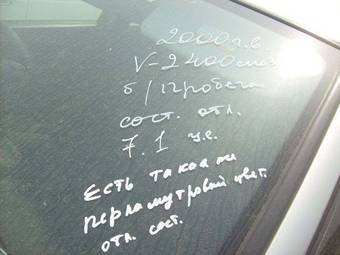 2000 г.в.
V-2400 см3
б/пробега
сост. отл.
7.1 у.е.
Есть такая же
перламутровый цвет.
отл. сост.